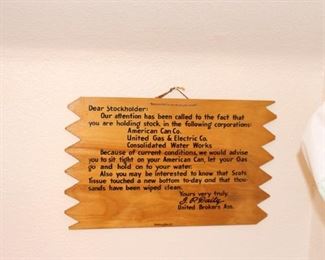 Dear Stockholder:
Our attention has been called to the fact that
you are holding stock in the following corporations:
American Can Co.
United Gas & Electric Co.
Consolidated Water Works
Because of current conditions, we would advise
you to sit tight on your American Can, let your Gas
go and hold on to your water.
Also you may be interested to know that Scots
Tissue touched a new bottom to-day and that thou-
sands have been wiped clean.
Yours very truly
United Brokers Ass.